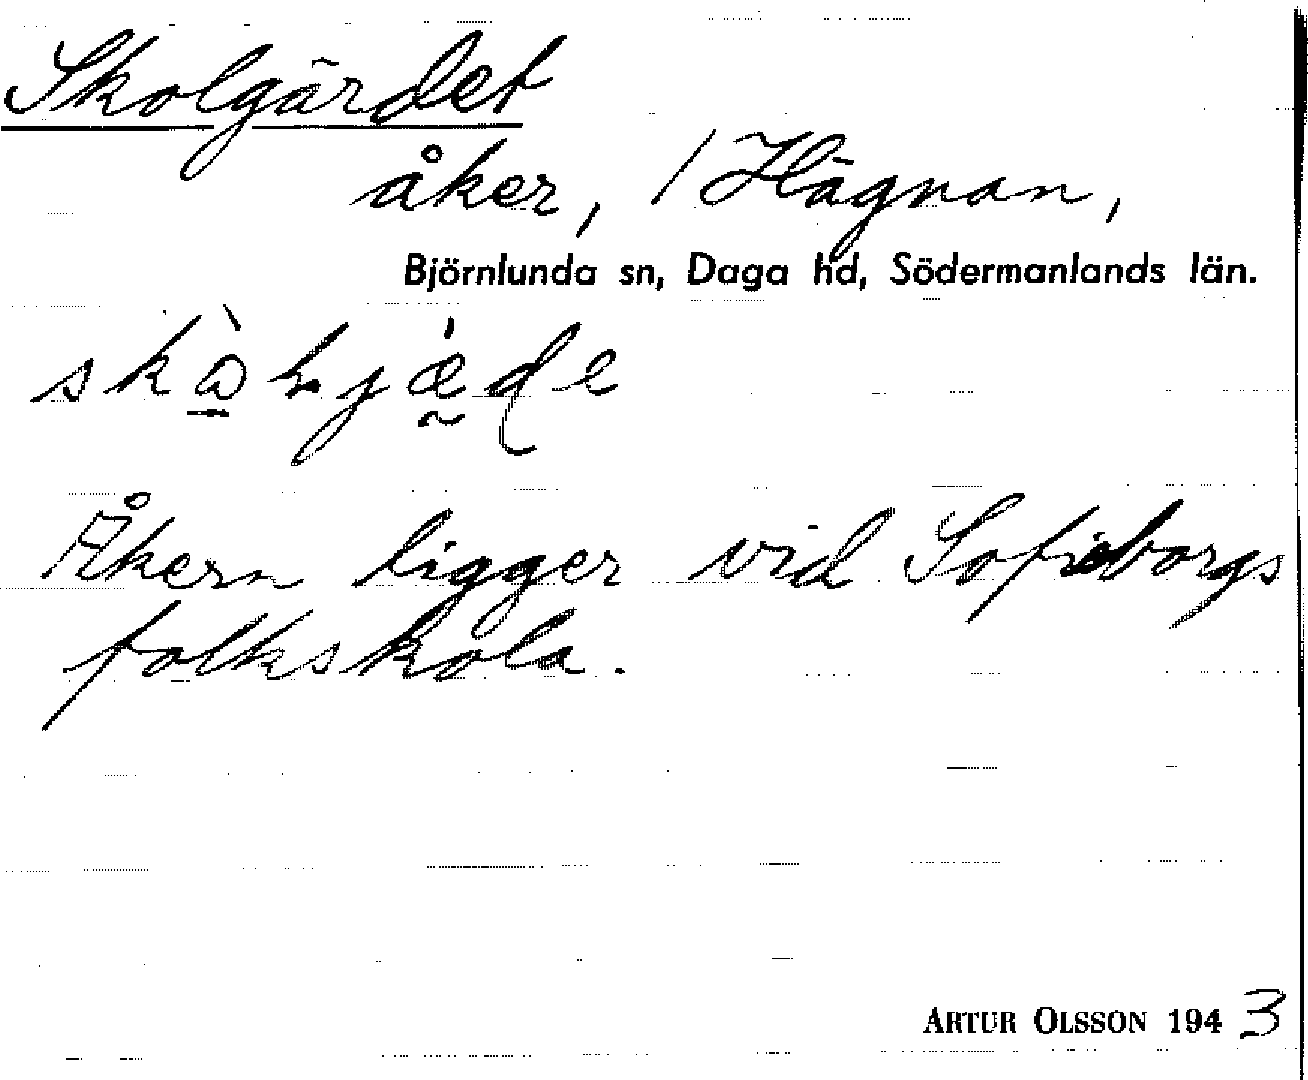 Skolgärdet
åker, / Hägnan,
Björnlunda sn, Daga hd, Södermanlands län.
Åkern ligger vid Sofieborgs
folkskola.
ARTUR OLSSON 1943